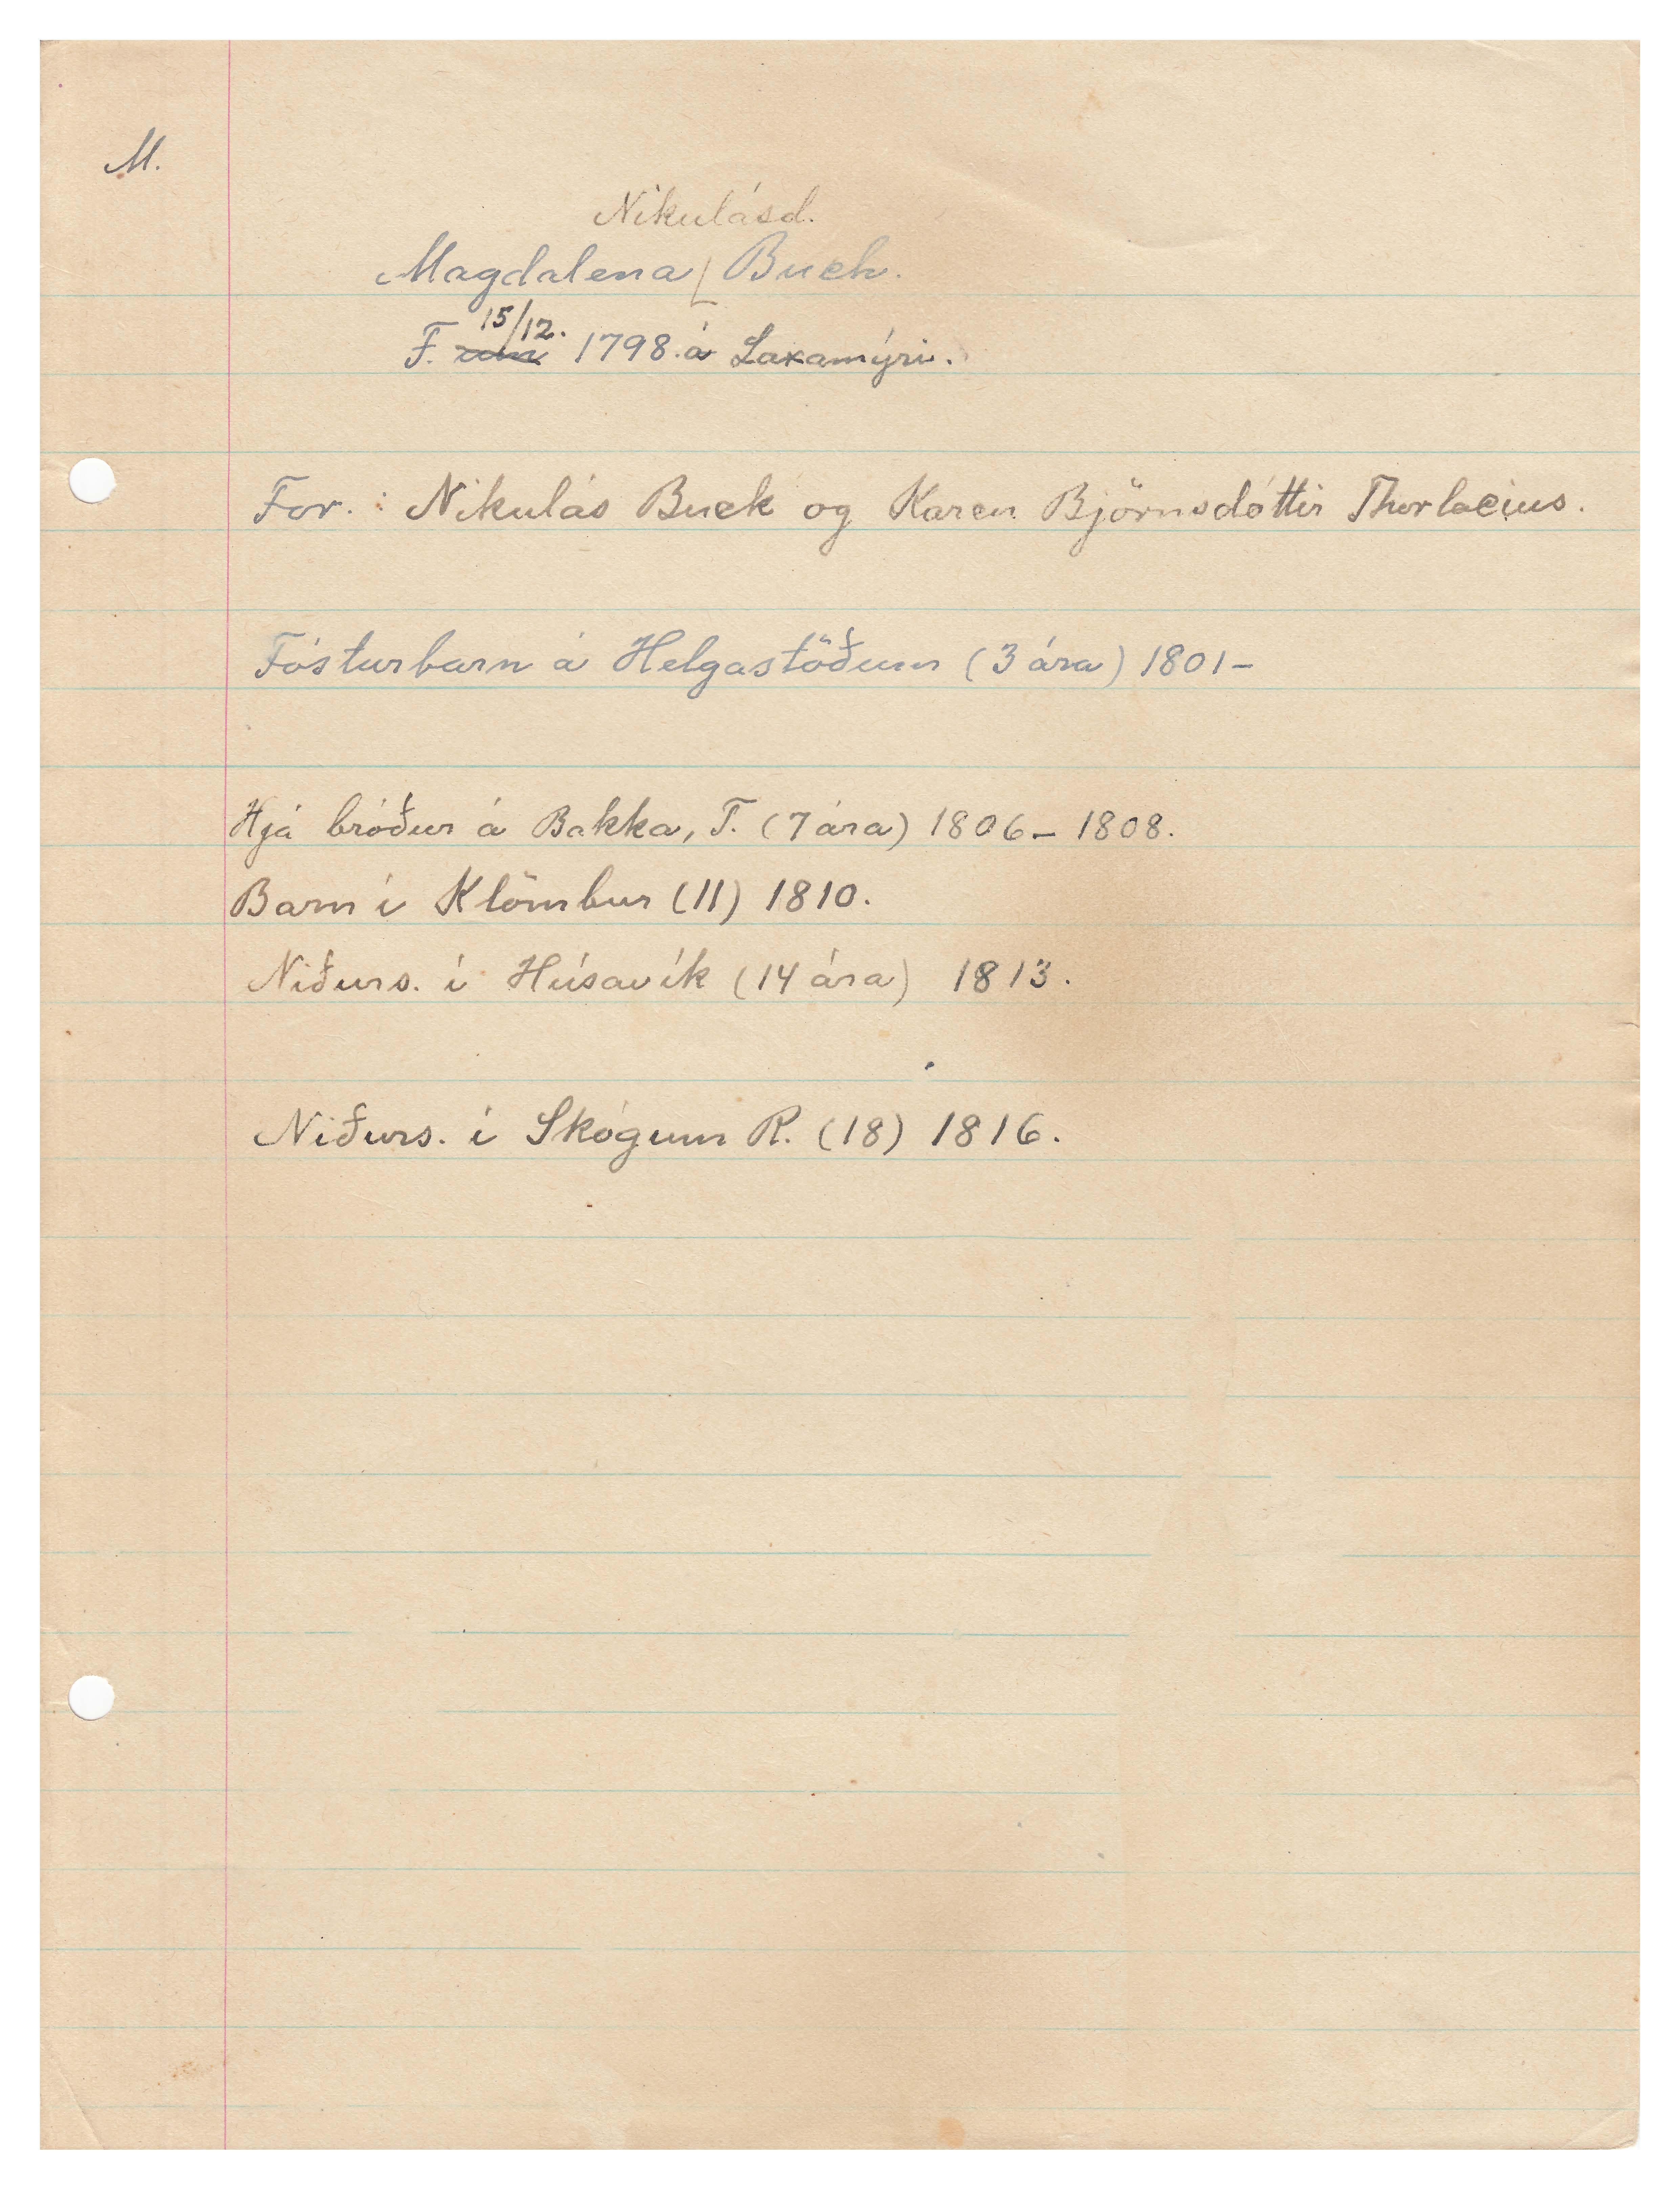 M.
Nikulásd.
Magdalena Buch.
15/12.
F. um 1798. á Laxamýri.
For.: Nikulás Buck og Karen Björnsdóttir Thorlacius.
Fósturbarn á Helgastöðum (3 ára) 1801-
Hjá bróður á Bakka, T. (7 ára) 1806- 1808.
Barn í Klömbur (11) 1810.
Niðurs. í Húsavík (14 ára) 1813.
Niðurs. í Skógum R. (18) 1816.